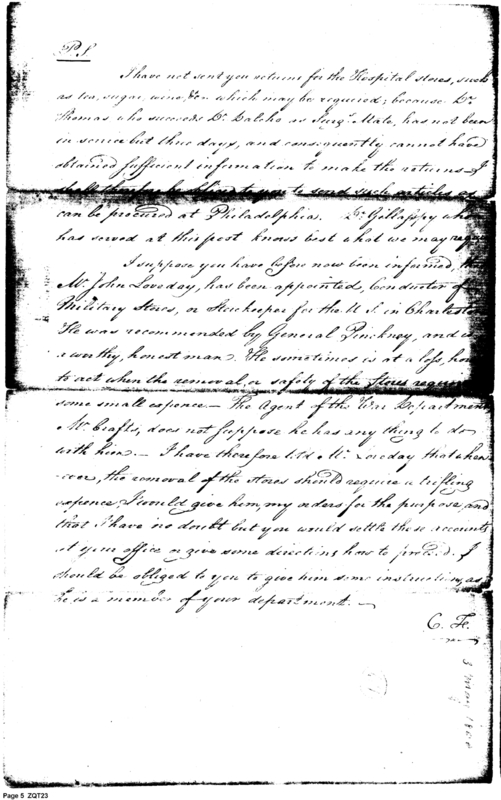 P.S.
I have not sent you returns for the Hospital stores, such
as tea, sugar, wine, &c. which may be required; because Dr.
Thomas who succeeds Dr. Dalcho as Surgs. Mate, has not been
in service but three days, and consequently cannot have
obtained sufficient information to make the returns. I
shall therefore be obliged to you to send such articles as
can be procured at Philadelphia. Dr. Gillaspy who
has served at this post knows best what we may
I suppose you have before now been informed,
Mr. John Loveday, has been appointed, Conductor of
Military Stores, or Storekeeper for the U S. in Charleston
He was recommended by General Pinckney, and
a worthy, honest man. He sometimes is at a loss, how
to act when the removal, or safety of the Stores require
some small expence — The Agent of the War Department
Mr. Crafts, does not suppose he has any thing to do
with him. — I have therefore told Mr. Loveday that when
ever, the removal of the stores should require a trifling
expence, I would give him, my orders for the purpose, and
that I have no doubt but you would settle these accounts
at your office or give some directions how to proceed. I
should be obliged to you to give him some instructions, as
he is a member of your department. —
3 May 1800
Page 5 ZQT23